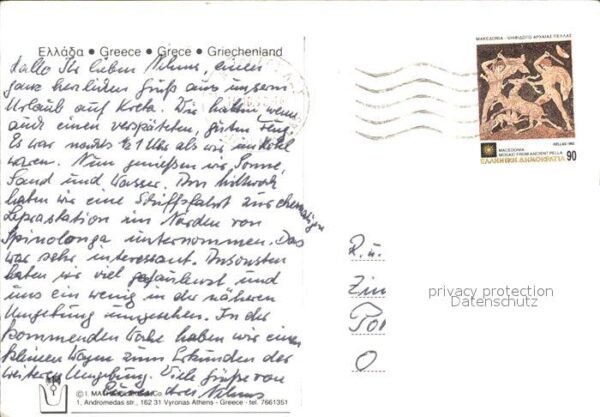 Ελλάδα • Greece • Grèce • Griechenland
Hallo Ihr lieben Nilmas, einen
ganz herzlichen Gruß aus unserm
Urlaub auf Kreta. Die hatten wenn
auch einen verspäteten, guten Flug.
Es war nachts ½ 1 Uhr als wir im Hotel
waren. Nun genießen wir Sonne,
Sand und Wasser. Am Mittwoch
haben wir eine Schiffsfahrt zur ehemaligen
Leprastation im Norden von
Spinolonga unternommen. Das
war sehr interessant. Ansonsten
haben wir viel gefaulenzt und
uns ein wenig in der näheren
Umgebung umgesehen. In der
kommenden Woche haben wir einen
kleinen Wagen zum Erkunden der
weiteren Umgebung. Viele Grüße von
© I.
1, Andromedas str., 162 31 Vyronas Athens - Greece - tel. 7661351
ΜΑΚΕΔΟΝΙΑ - ΨΗΦΙΔΩΤΟ ΑΡΧΑΙΑΣ ΠΕΛΛΑΣ
HELLAS 1992
MACEDONIA
MOSAIC FROM ANCIENT PELLA
ΕΛΛΗΝΙΚΗ ΔΗΜΟΚΡΑΤΙΑ 90
R. u.
Zin
Por
O
privacy protection
Datenschutz